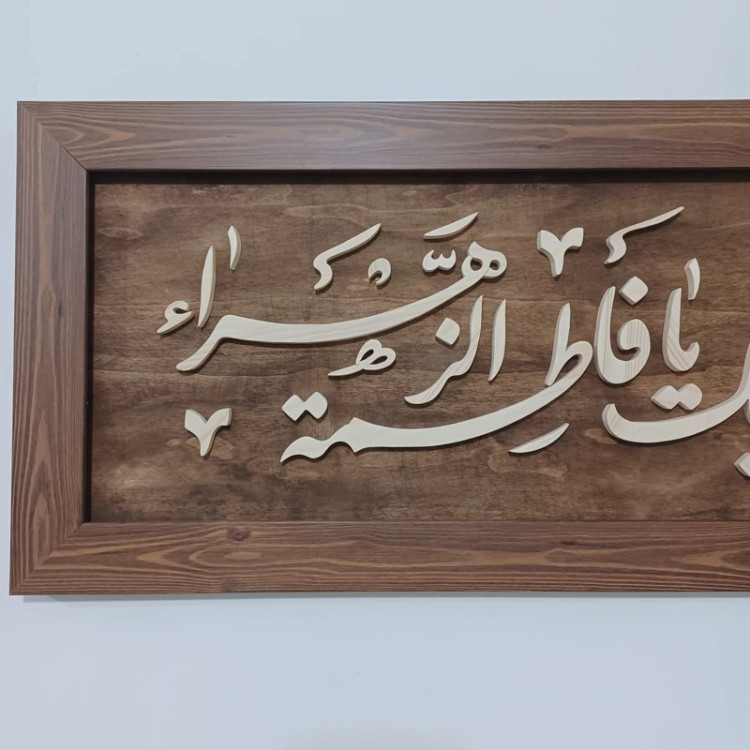 یا فاطمة الزهراء